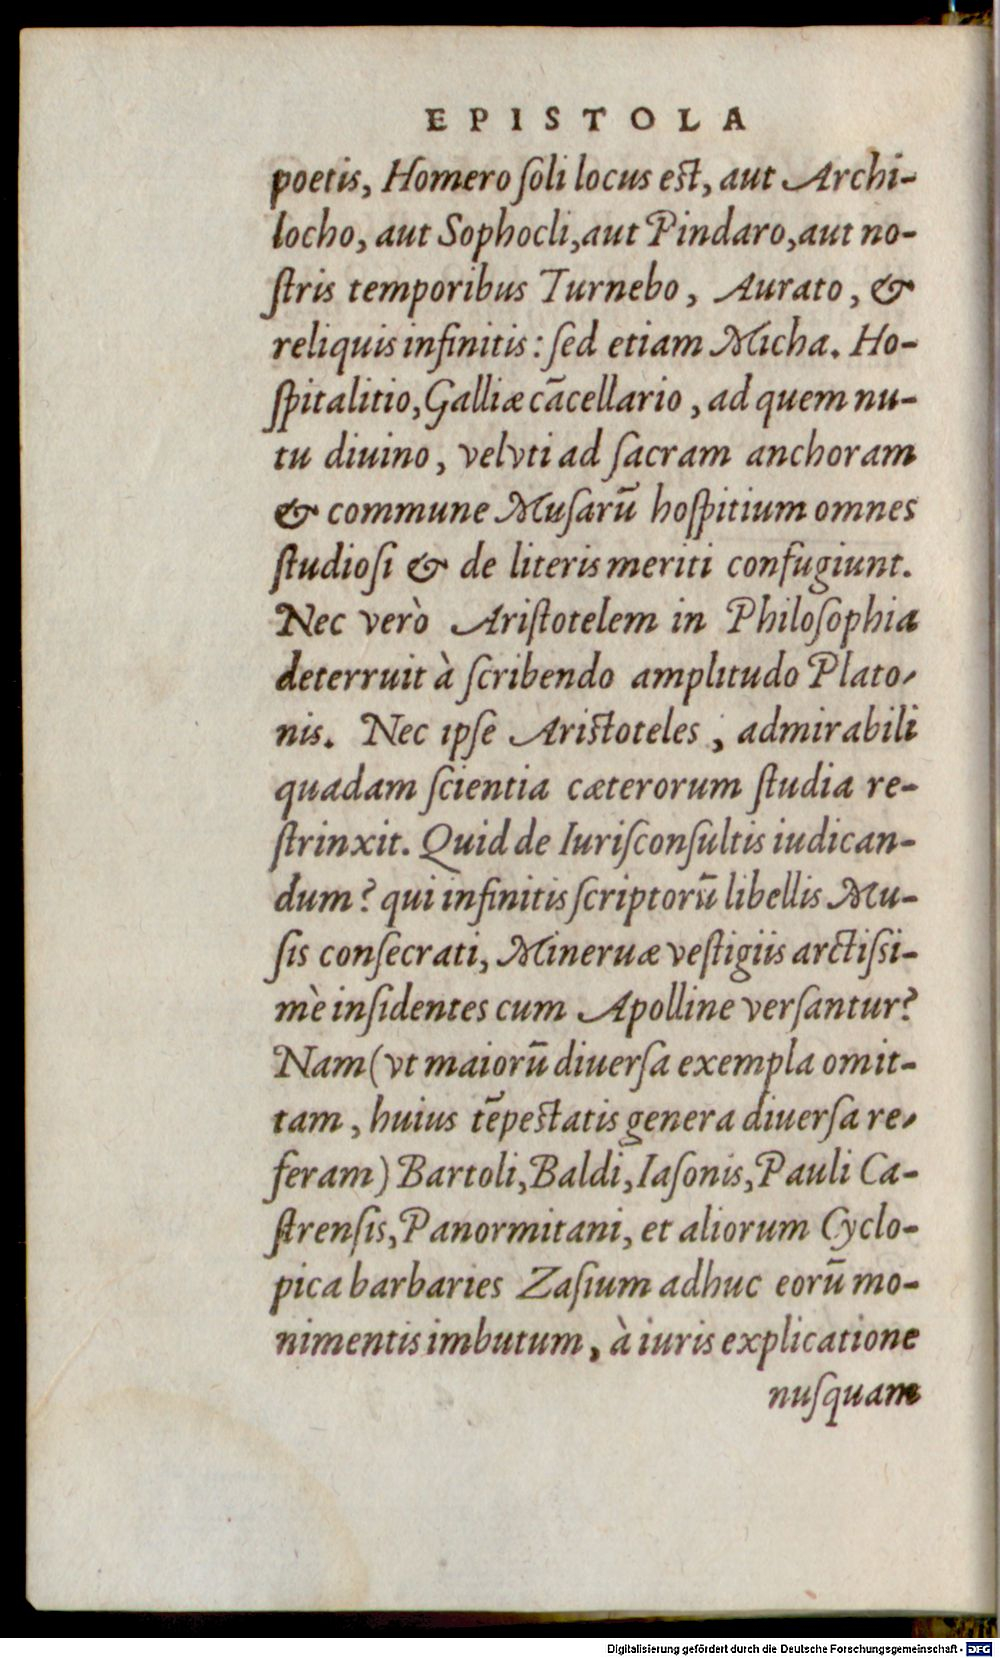 EPISTOLA
poetis, Homero ſoli locus eſt, aut Archi-
locho, aut Sophocli, aut Pindaro, aut no-
ſtris temporibus Turnebo, Aurato, &
reliquis infinitis: ſed etiam Micha. Ho-
ſpitalitio, Galliæ cãcellario, ad quem nu-
tu diuino, velvti ad ſacram anchoram
& commune Muſarũ hoſpitium omnes
ſtudioſi & de literis meriti confugiunt.
Nec verò Ariſtotelem in Philoſophia
deterruit à ſcribendo amplitudo Plato-
nis. Nec ipſe Ariſtoteles, admirabili
quadam ſcientia cæterorum ſtudia re-
ſtrinxit. Quid de Iuriſconſultis iudican-
dum? qui infinitis ſcriptorũ libellis Mu-
ſis conſecrati, Mineruæ veſtigiis arctiſsi-
mè inſidentes cum Apolline verſantur?
Nam (vt maiorũ diuerſa exempla omit-
tam, huius tẽpeſtatis genera diuerſa re-
feram) Bartoli, Baldi, Iaſonis, Pauli Ca-
ſtrenſis, Panormitani, et aliorum Cyclo-
pica barbaries Zaſium adhuc eorũ mo-
nimentis imbutum, à iuris explicatione
nuſquam
Digitalisierung gefördert durch die Deutsche Forschungsgemeinschaft - DFG